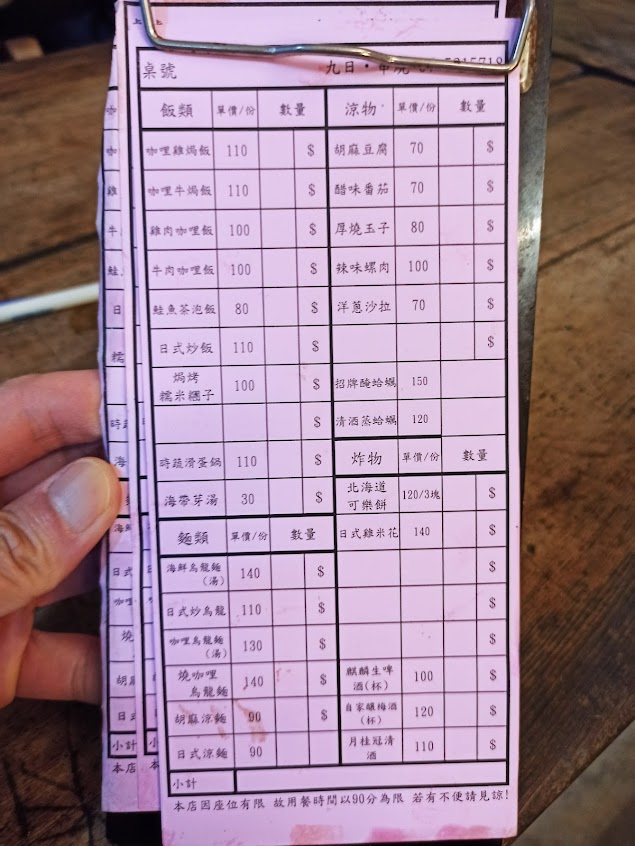 桌號
九日・串燒
飯類 單價/份 數量
咖哩雞焗飯 110 $
咖哩牛焗飯 110 $
雞肉咖哩飯 100 $
牛肉咖哩飯 100 $
鮭魚茶泡飯 80 $
日式炒飯 110 $
焗烤
糯米糰子 100 $
$
時蔬滑蛋鍋 110 $
海帶芽湯 30 $
麵類 單價/份 數量
海鮮烏龍麵
(湯) 140 $
日式炒烏龍 110 $
咖哩烏龍麵
(湯) 130 $
燒咖哩
烏龍麵 140 $
胡麻涼麵 90 $
日式涼麵 90
小計
涼物 單價/份 數量
胡麻豆腐 70 $
醋味番茄 70 $
厚燒玉子 80 $
辣味螺肉 100 $
洋蔥沙拉 70 $
$
招牌醃蛤蠣 150
清酒蒸蛤蠣 120
炸物 單價/份 數量
北海道
可樂餅 120/3塊 $
日式雞米花 140 $
$
$
$
麒麟生啤
酒(杯) 100 $
自家釀梅酒
(杯) 120 $
月桂冠清
酒 110 $
本店因座位有限 故用餐時間以90分為限 若有不便請見諒!